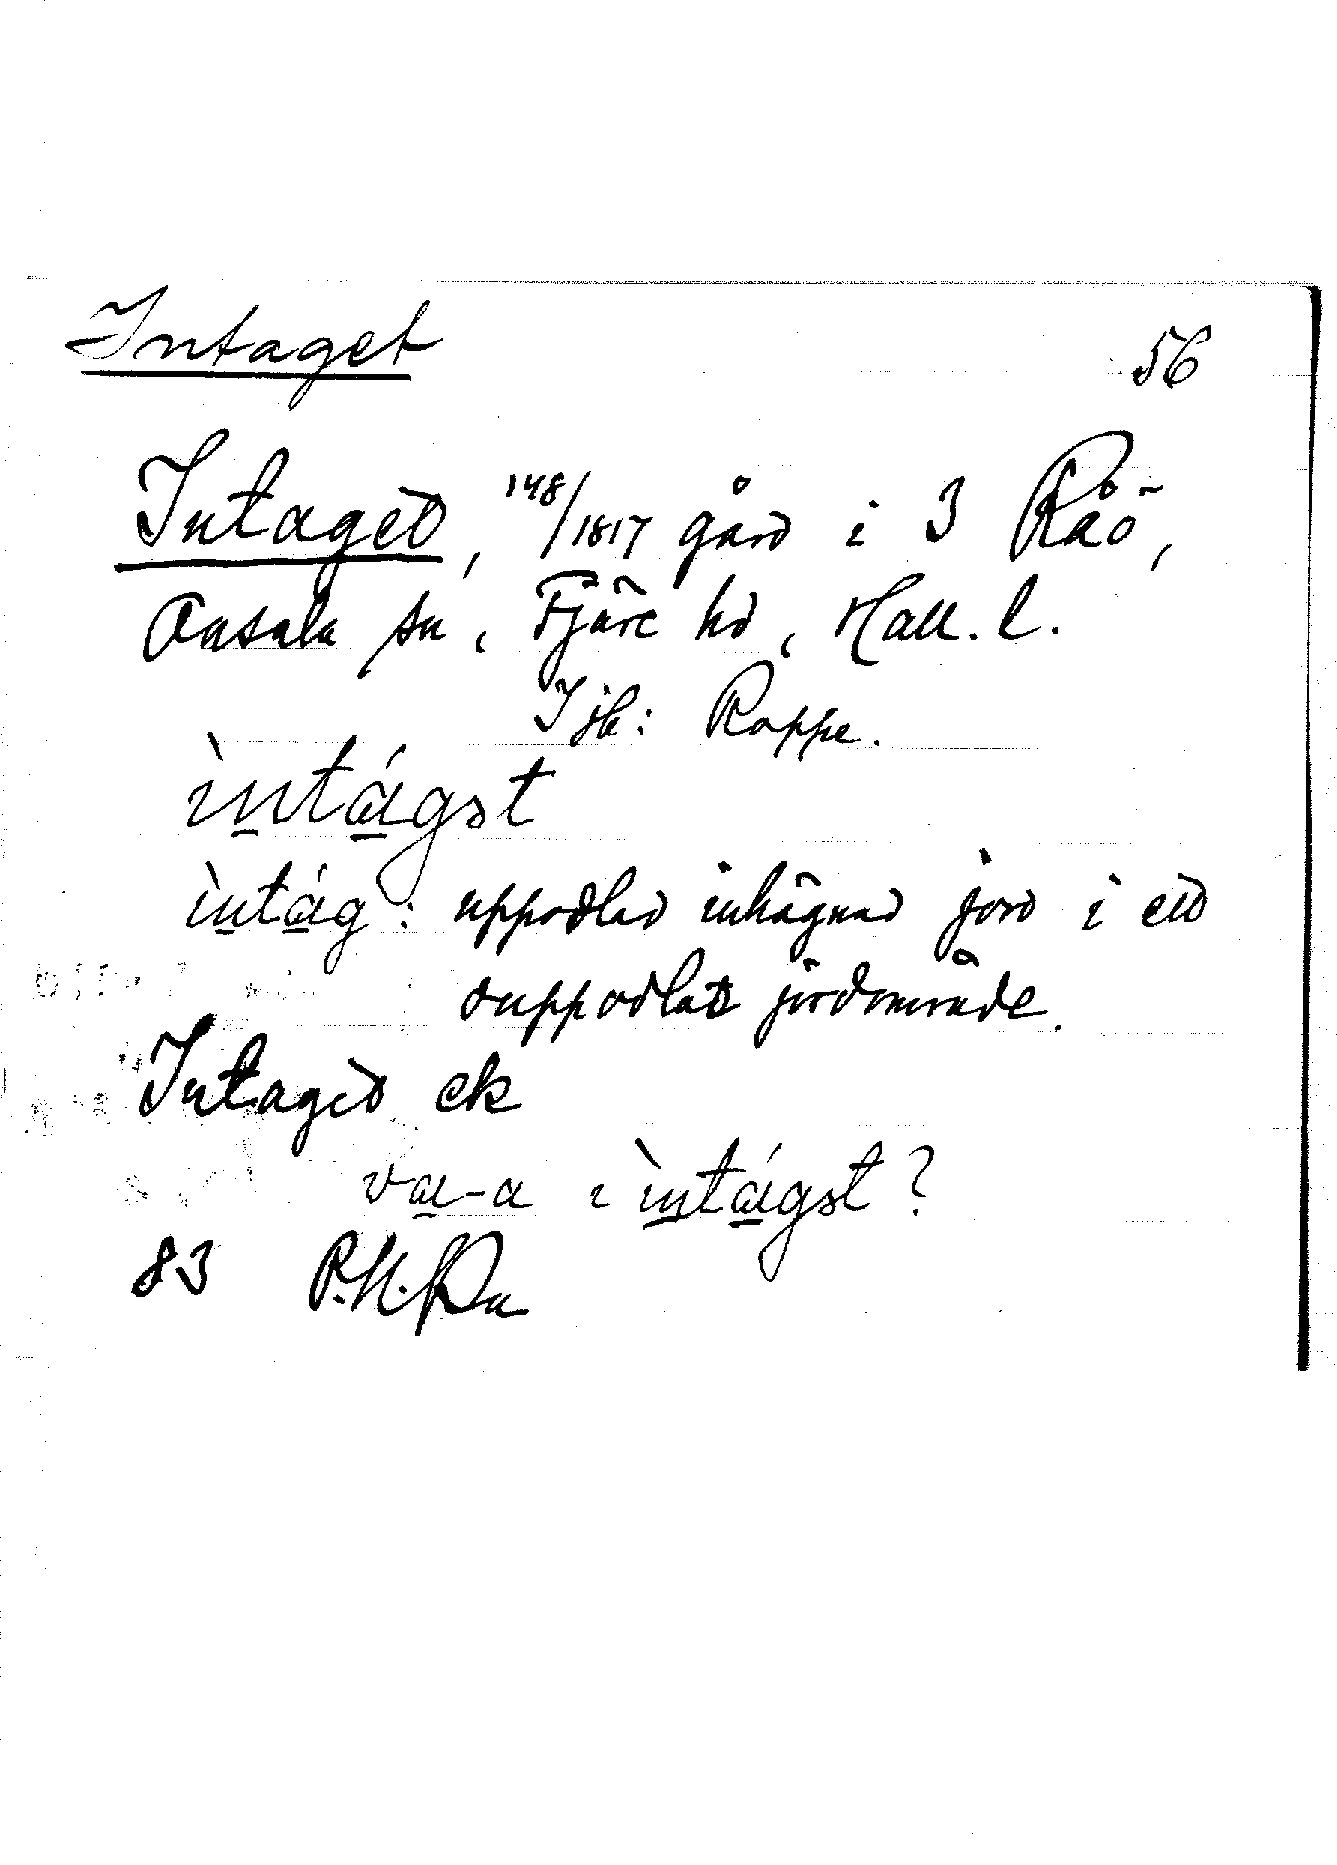 Intaget
56
Intaget, 148/1817 gård i 3 Råö,
Onsala sn, Fjäre hd, Hall. l.
Jjb: Roppe.
ìntágət
ìntág: uppodlad inhägnad jord i ett
ouppodlat jordområde.
Intaget ek
va-a i ìntágət?
83 P.N.